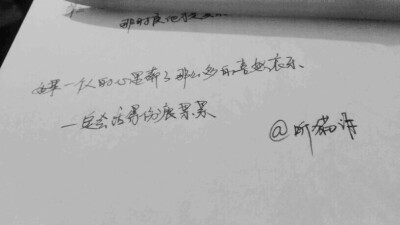 如果一个人的心里藏了那么多的喜怒哀乐
一定会活得伤痕累累
@听